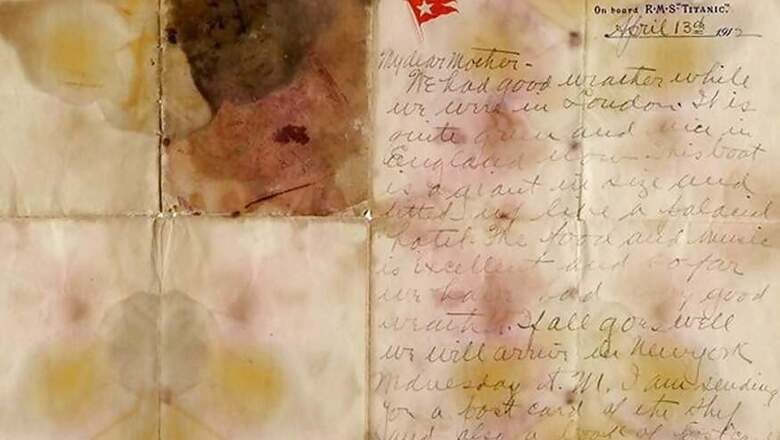 On board R.M.S "TITANIC."
April 13th 1912
My dear Mother-
We had good weather while
we were in London. It is
quite green and nice in
England now. This boat
is a giant in size and
fitted up like a palacial
hotel. The food and music
is excellent and so far
we have had good
weather. If all goes well
we will arrive in New york
Wednesday A.M. I am sending
you a post card of the ship
and also a book of